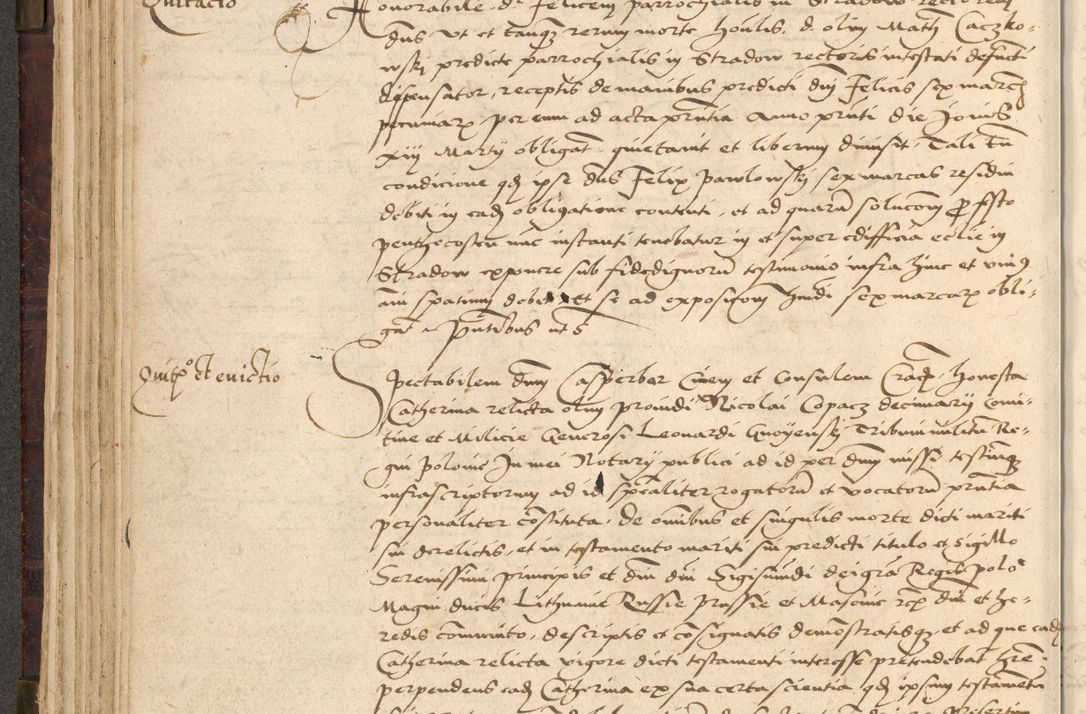 Quitacio
Honorabile. d. Felicem parrochialis in Stradow rectorem
dns, Ut et tanqz rerum morte honlis. d. olim Mathi Caczko-
wskj predicte parrochialis in Stradow rectoris intestati defuncti
dispensator, receptis de manibus predicti dnj Felicis sex marcis
pecuniarz per eum ad acta pntia Anno pnti die Jovis
xiij Martij obligat. quietavit et liberum dimisit. Tali tn
condicione qd ipse dns Felix Pawlowskj sex marcas residui
debiti in eadz obligatione contenti, et ad quaru solucom p festo
penthecosten nuc instanti tenebatur in et super edifficia ecclie in
Stradow exponere sub fidedignoru testimonio infra hinc et unius
anni spatium debet Et se ad expositiom hmdi sex marcarz obli-
gat. Pntibus ut s
Quitco et evictio
Spectabilem dnm Casper Ber Civem et Consulem Crac. honesta
Catherina relicta olim providi Nicolai Copacz decimarij Comi-
tive et Milicie Generosi Leonardi Gnoyenskj Tribuni militu Re-
gni Polonie In mei Notarij publici ad id per dnm missi, testiumqz
infrascriptorum ad id spealiter rogatoru et vocatoru pntia
personaliter constituta. de omibus et singulis morte dicti mariti
sui derelictis, et in testamento mariti sui predicti titulo et sigillo
Serenissimi principis et dni dni Sigismundi dei gra Regis Polo
Magni ducis Lithuanie Russie Prussie et Masovie rcz dni et he-
redis communito, descriptis et consignatis demonstratisqz et ad que eadz
Catherina relicta vigore dicti testamenti interesse pretendebat hre.
perpendens eadz Catherina ex sua certa scientia, qd ipsum testametu